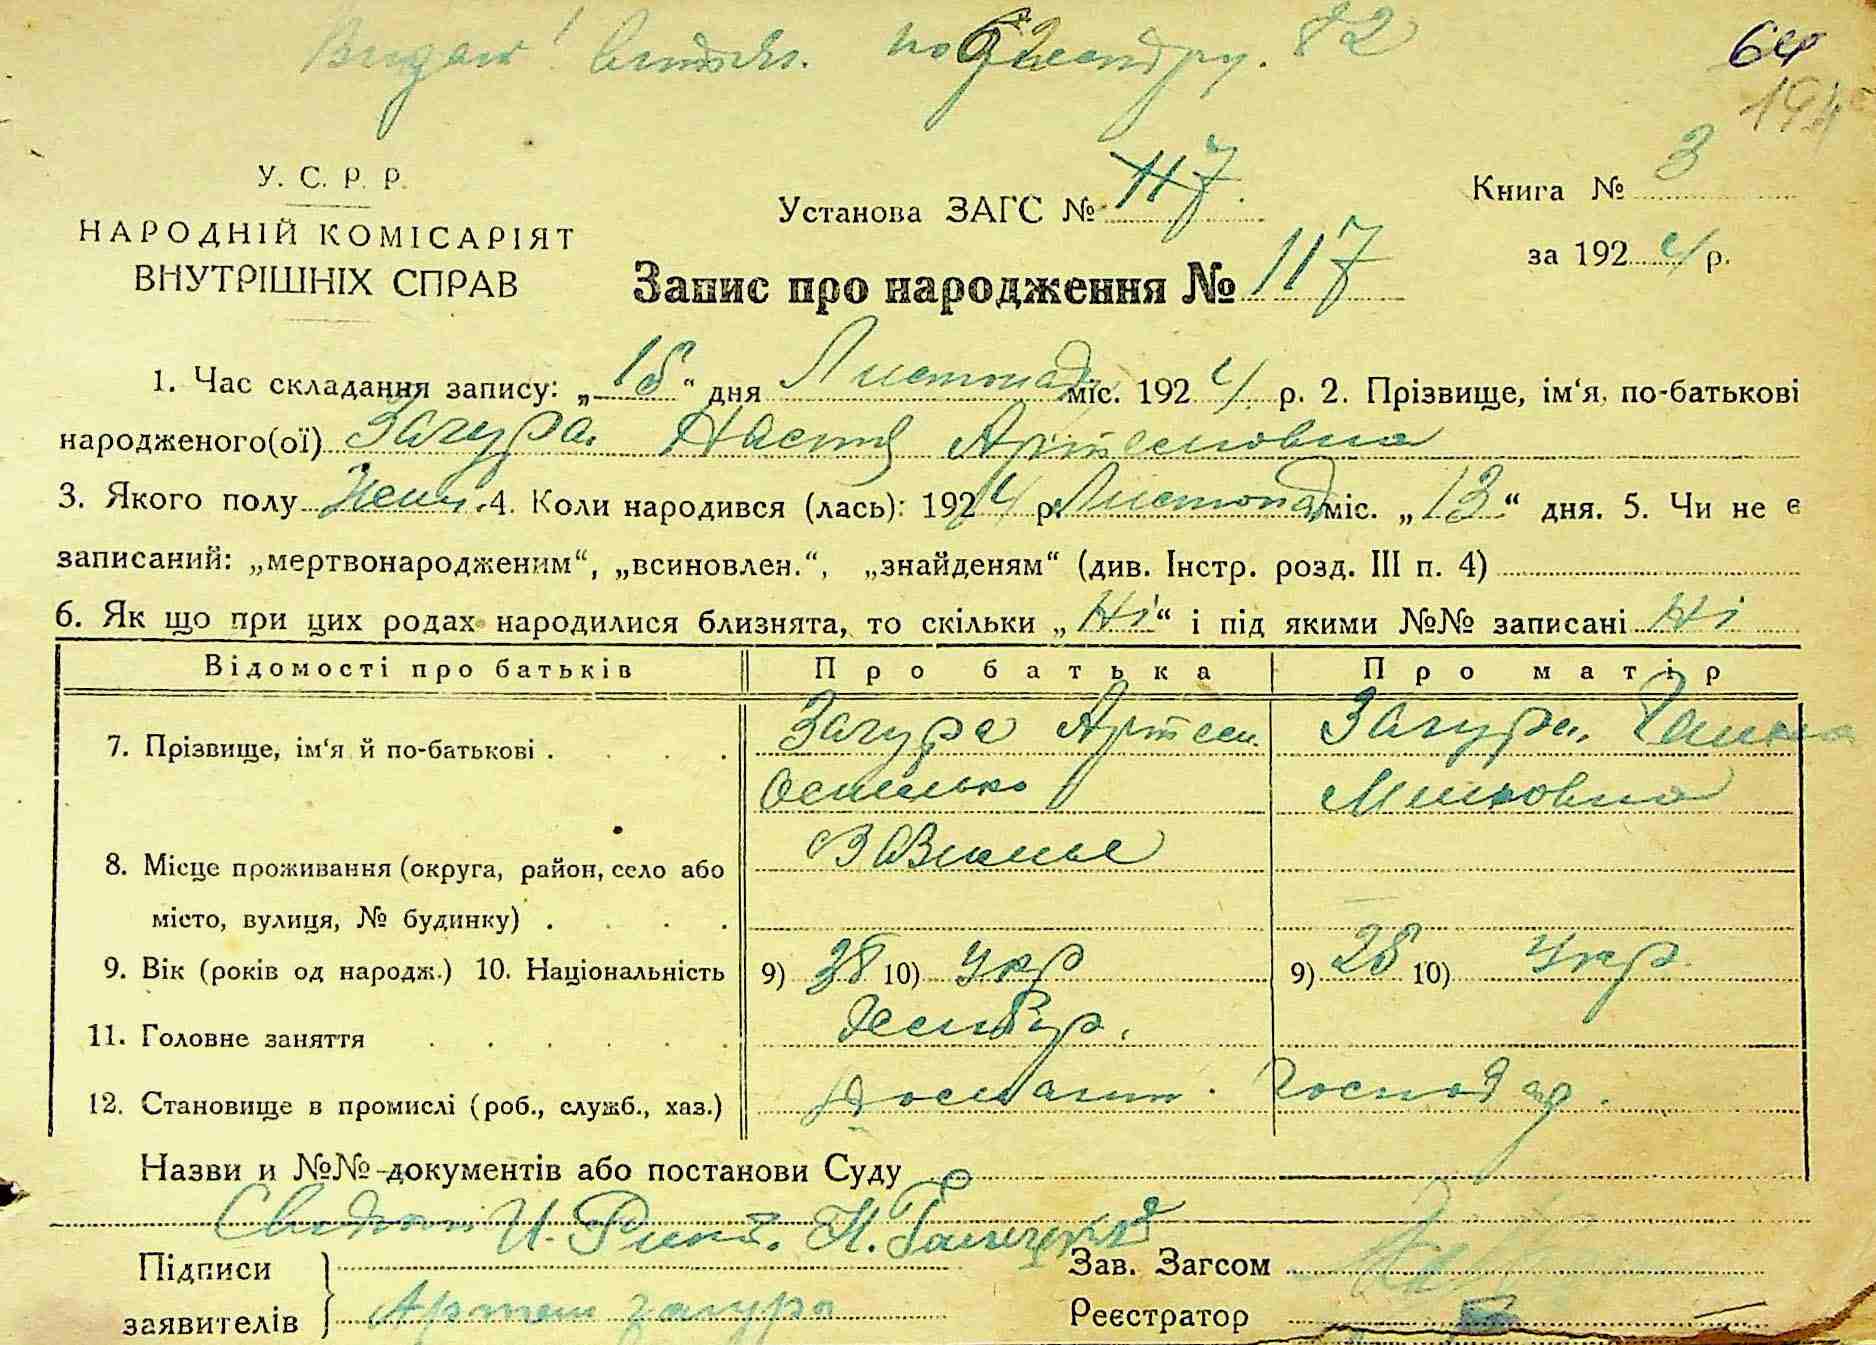 82
64
194
У. С. Р. Р.
НАРОДНІЙ КОМІСАРІЯТ
ВНУТРІШНІХ СПРАВ
Установа ЗАГС № 117
Книга № 3
за 1924 р.
Запис про народження № 117
1. Час складання запису: „15“ дня Листопад міс. 1924 р. 2. Прізвище, ім‘я, по-батькові
народженого(ої) Загура Настя Артемовна
3. Якого полу Жен. 4. Коли народився (лась): 1924 р. Листопад міс. „13“ дня. 5. Чи не є
записаний: „мертвонародженим“, „всиновлен.“, „знайденям“ (див. Інстр. розд. III п. 4)
6. Як що при цих родах народилися близнята, то скільки „Ні“ і під якими №№ записані Ні
Відомості про батьків Про батька Про матір
7. Прізвище, ім‘я й по-батькові . . . . Загура Артем Загура Ганна
8. Місце проживання (округа, район, село або
місто, вулиця, № будинку) . . . .
9. Вік (років од народж.) 10. Національність 9) 38 10) Укр 9) 28 10) Укр.
11. Головне заняття . . . . . . Хлибор.
12. Становище в промислі (роб., служб., хаз.) Господар.
Назви и №№ документів або постанови Суду
Підписи
заявителів Артем Загура
Зав. Загсом
Реєстратор